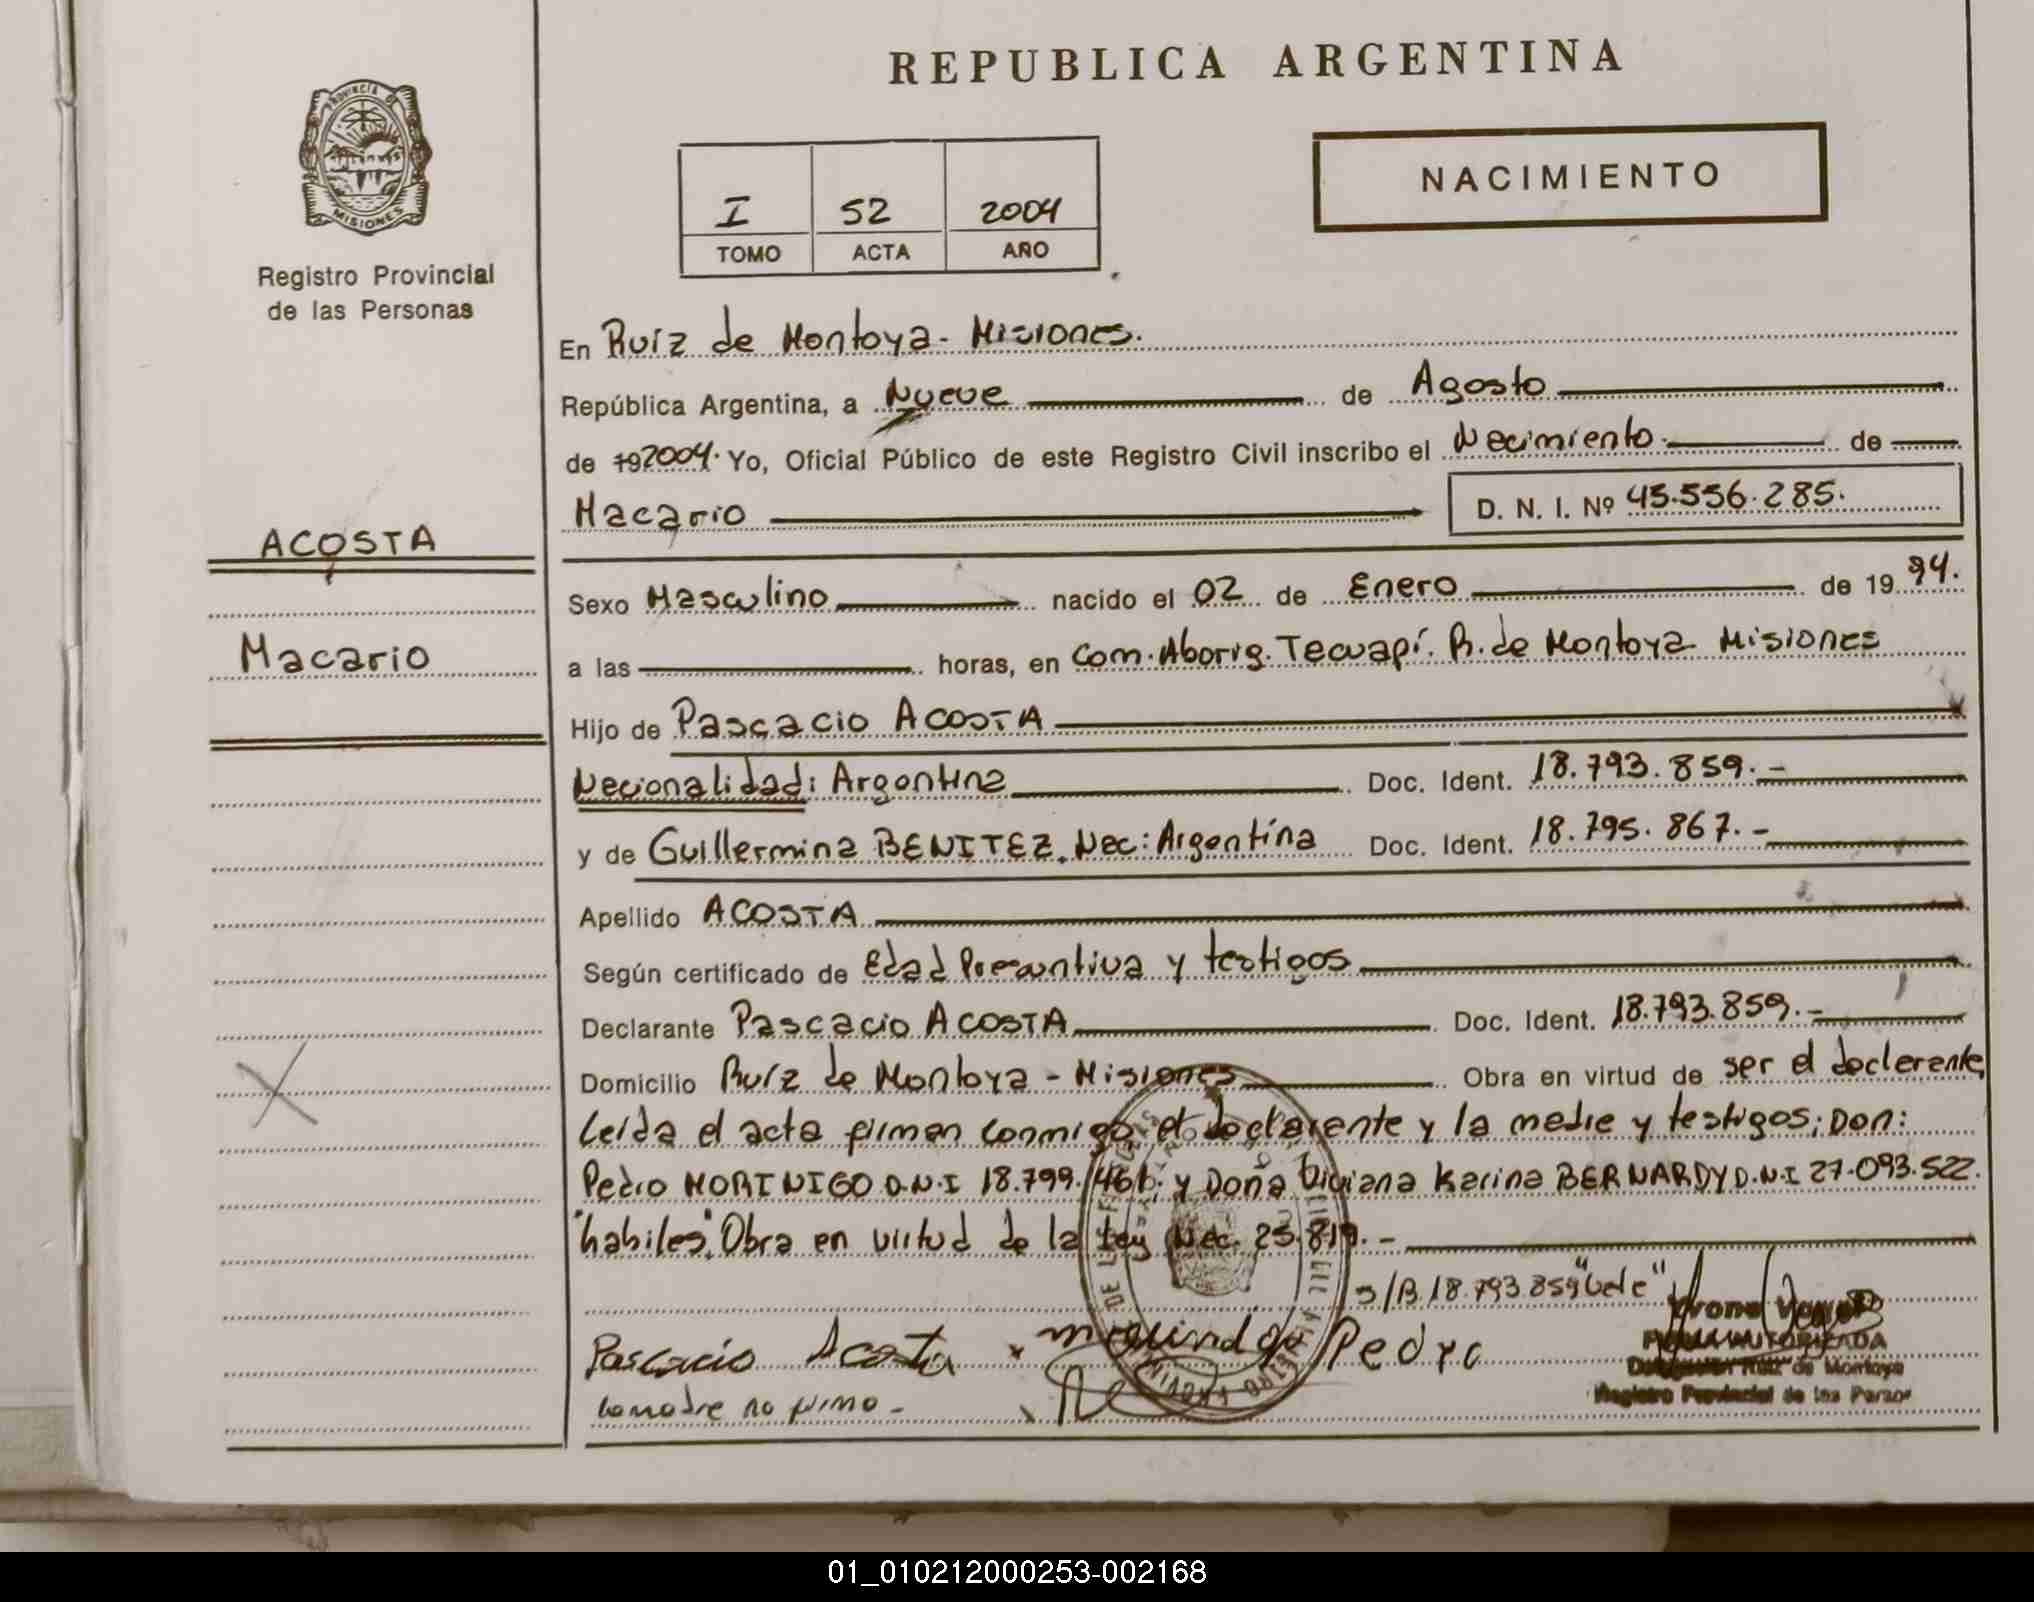 REPUBLICA ARGENTINA
PROVINCIA DE
MISIONES
Registro Provincial
de las Personas
NACIMIENTO
I 52 2004
TOMO ACTA AÑO
En Ruíz de Montoya - Misiones.
República Argentina, a Nueve de Agosto
de 192004. Yo, Oficial Público de este Registro Civil inscribo el Nacimiento de
Macario D. N. I. Nº 45.556.285.
ACOSTA
Macario
Sexo Masculino nacido el 02 de Enero de 19 94.
a las horas, en Com. Aborig. Tecuapí. R. de Montoya Misiones
Hijo de Pascacio ACOSTA
Nacionalidad: Argentina Doc. Ident. 18.793.859.-
y de Guillermina BENITEZ. Nac: Argentina Doc. Ident. 18.795.867.-
Apellido ACOSTA
Según certificado de Edad Presuntiva y testigos
Declarante Pascacio ACOSTA Doc. Ident. 18.793.859.-
Domicilio Ruíz de Montoya - Misiones Obra en virtud de ser el declarante,
Leída el acta firman conmigo el declarante y la madre y testigos; Don:
Pedro MORINIGO D.N.I 18.799.466; y Doña Viviana Karina BERNARDY D.N.I 27.093.522.
"habiles". Obra en virtud de la Ley Nac. 25.819.-
S/B 18.793.859 "Vale"
Pascacio Acosta Pedro
La madre no firmo -
FIRMA AUTORIZADA
Delegación Ruiz de Montoya
Registro Provincial de las Person
01_010212000253-002168